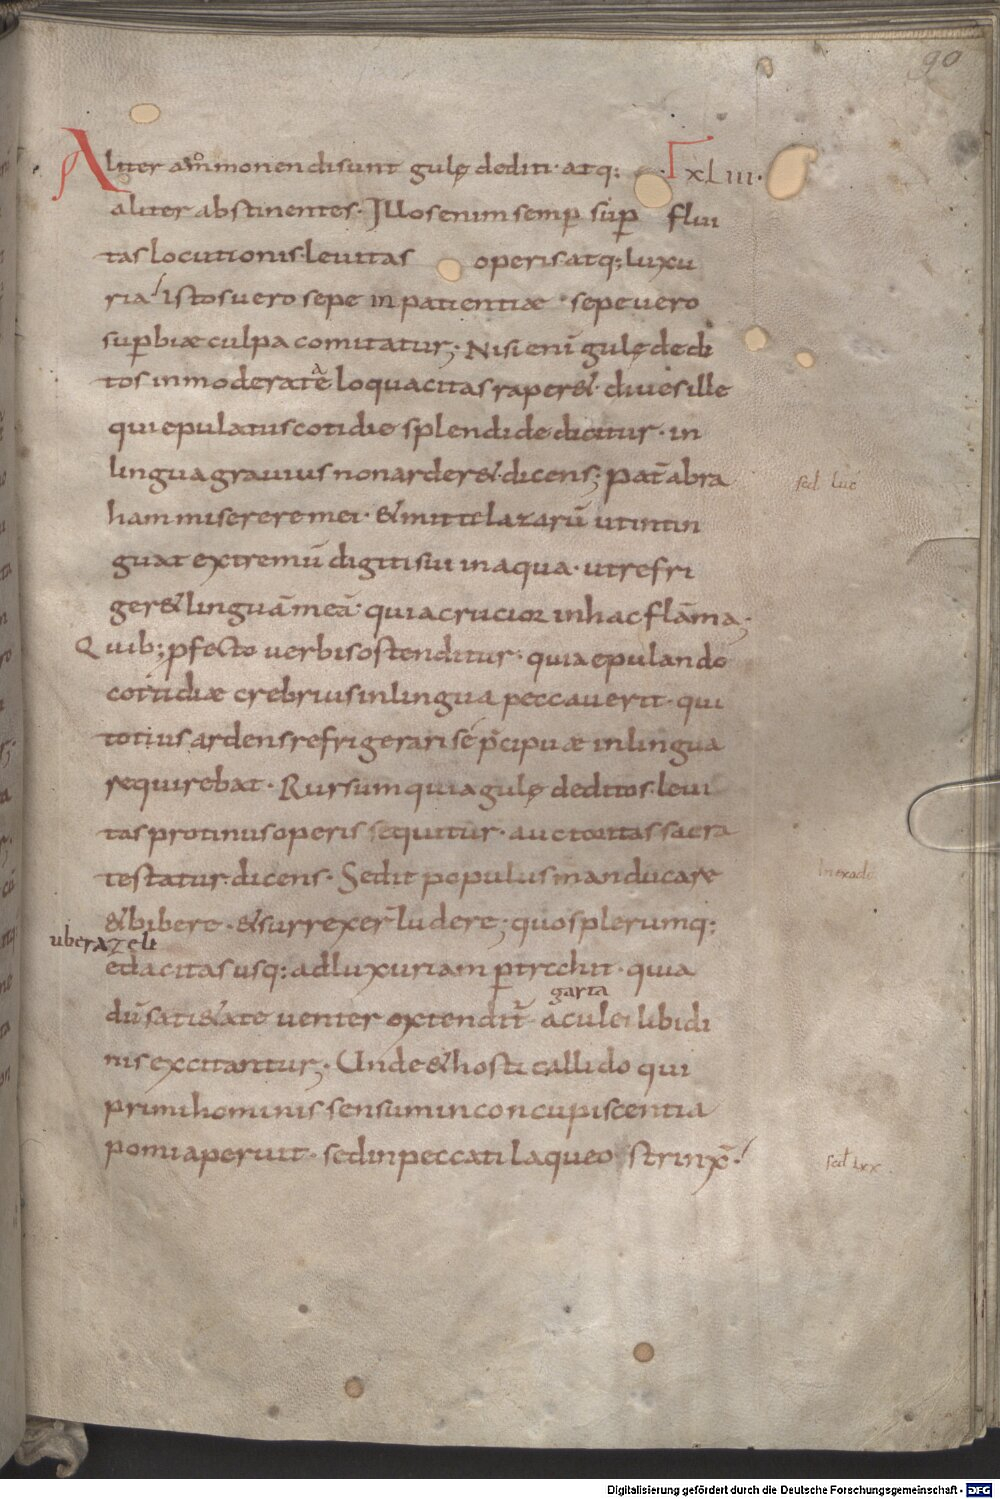 90
Aliter am̊monendi sunt gulę dediti· atq:· Γ xLiii·
aliter abstinentes· Illos enim semp̄ sup̄ flui
tas locutionis· leuitas operis· atq; luxu
ria/ istos uero sepe inpatientiæ · sepe uero
sup̄biæ culpa comitatur;· Nisi enī gulę dedi
a
tos inmoderatẽ loquacitas raper&· diues ille
qui epulatus cotidie splendide dicitur· in
lingua grauius non arder& dicens; pat̄ abra
ham miserere mei· & mitte lazarū ut intin
guat extremū digiti sui in aqua· ut refri
ger& linguā meā· quia crucior in hac flāma;
Quib; p̄fecto uerbis ostenditur· quia epulando
cottidiæ crebrius in lingua peccauerit· qui
totius ardens refrigerari sé p̄cipuæ in lingua
requirebat· Rursum quia gulę deditos· leui
tas protinus operis sequitur· auctoritas sacra
testatur· dicens· Sedit populus manducare
& bibere· & surrexer̄ ludere; quos plerumq:
edacitas usq: ad luxuriam p̄trachit· quia
garta
dū sati&ate uenter extendit̄· aculei libidi
nis excitantur;· Unde & hosti callido qui
primi hominis sensum in concupiscentia
pomi aperuit· sed in peccati laqueo strinx̄·/
sed luc
In exodo
uberazeli